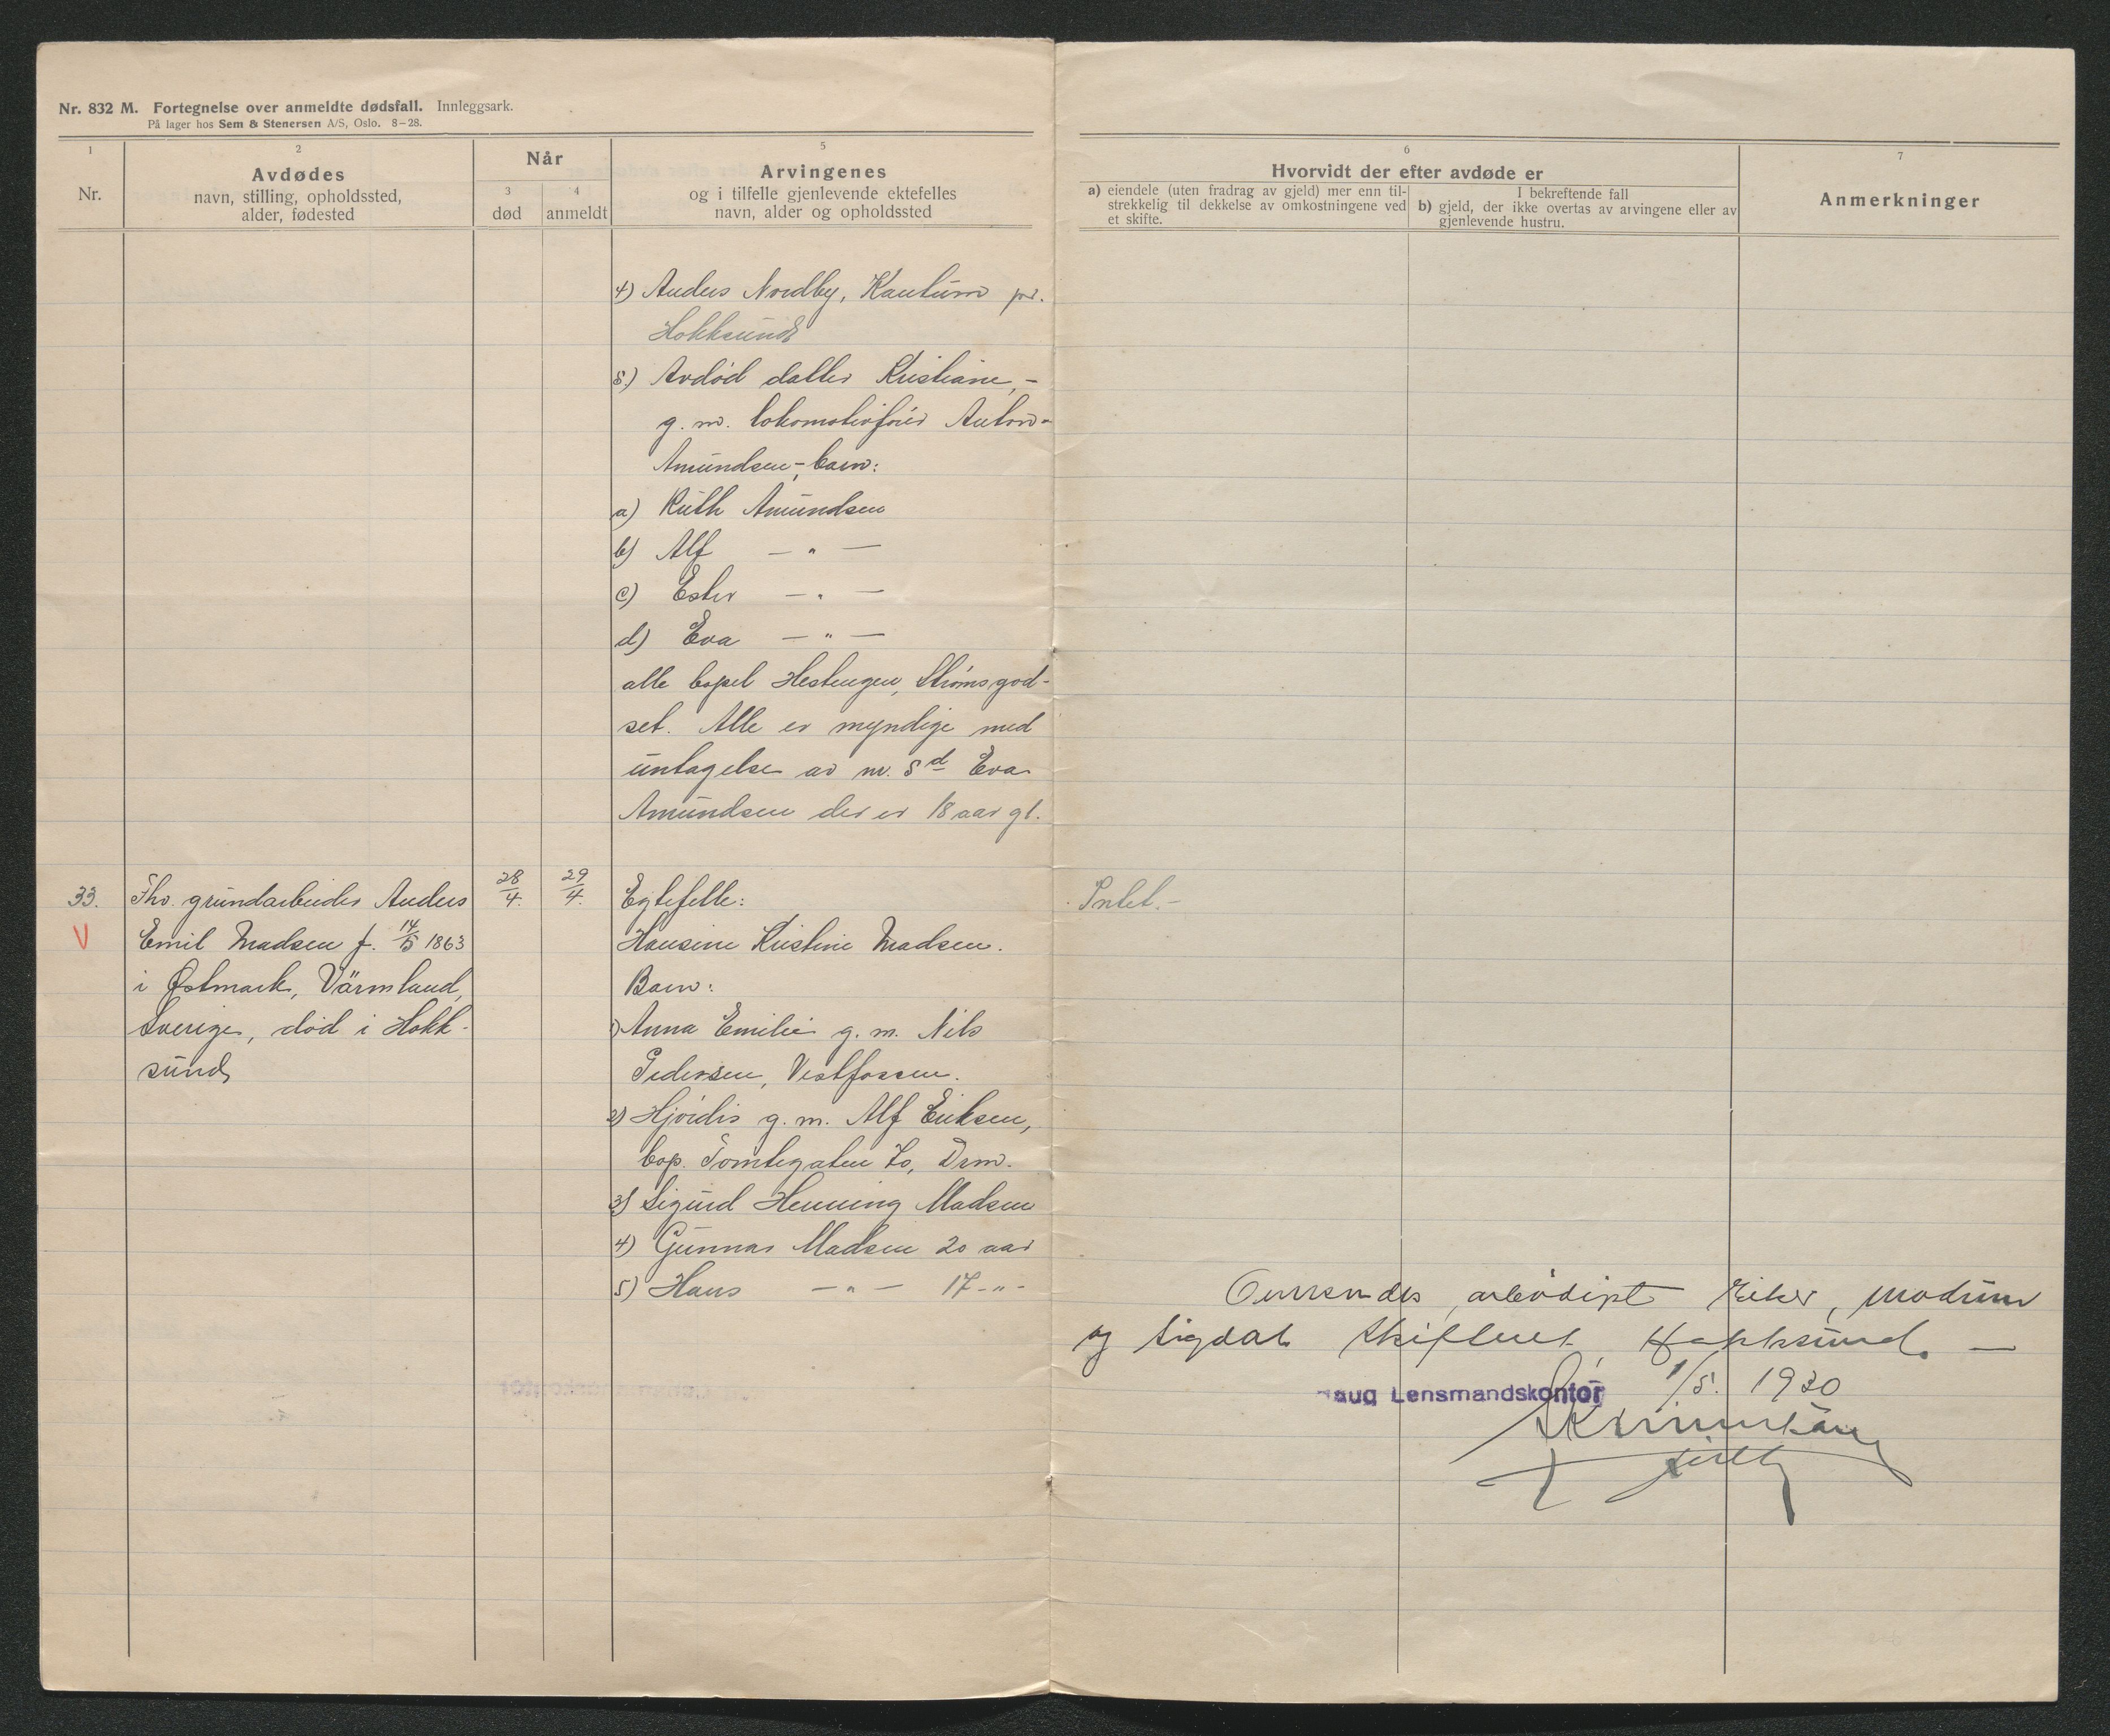 Nr. 832 M. Fortegnelse over anmeldte dødsfall. Innleggsark.
På lager hos Sem & Stenersen A/S, Oslo. 8–28.
1
Nr.
2
Avdødes
navn, stilling, opholdssted,
alder, fødested
Når
3
død
4
anmeldt
5
Arvingenes
og i tilfelle gjenlevende ektefelles
navn, alder og opholdssted
6
Hvorvidt der efter avdøde er
a) eiendele (uten fradrag av gjeld) mer enn til-
strekkelig til dekkelse av omkostningene ved
et skifte.
I bekreftende fall
b) gjeld, der ikke overtas av arvingene eller av
gjenlevende hustru.
7
Anmerkninger
4) Anders Nordby, pr.
Hokksund
5.) Avdød datter Kristiane,-
g. m. lokomotivfører Anton
Amundsen-, barn:
a) Ruth Amundsen
b) Alf — " —
c) Ester — " —
d) Eva — " —
alle bopel Hestengen, Strømsgod-
set. Alle er myndige med
untagelse av nr. 5 d Eva
Amundsen der er 18 aar gl.
33.
V
Fhv. grundarbeider Anders
Emil Madsen f. 14/5 1863
i Østmark, Värmland,
Sverige, død i Hokk-
sund
28/4.
29/4.
Egtefelle:
Hansine Kristine Madsen.
Barn:
1) Anna Emilie g. m. Nils
Pedersen, Vestfossen.
2) Hjørdis g. m. Alf Eriksen,
bop. Tomtegaten 70, Drm.
3) Sigurd Henning Madsen
4) Gunnar Madsen 20 aar
5) Hans — " — 17 - " -
Intet. -
Oversendes ærbødigst Eiker, Modum
og Sigdal skifterett, Hokksund. —
aug Lensmandskontor 1/5. 1930